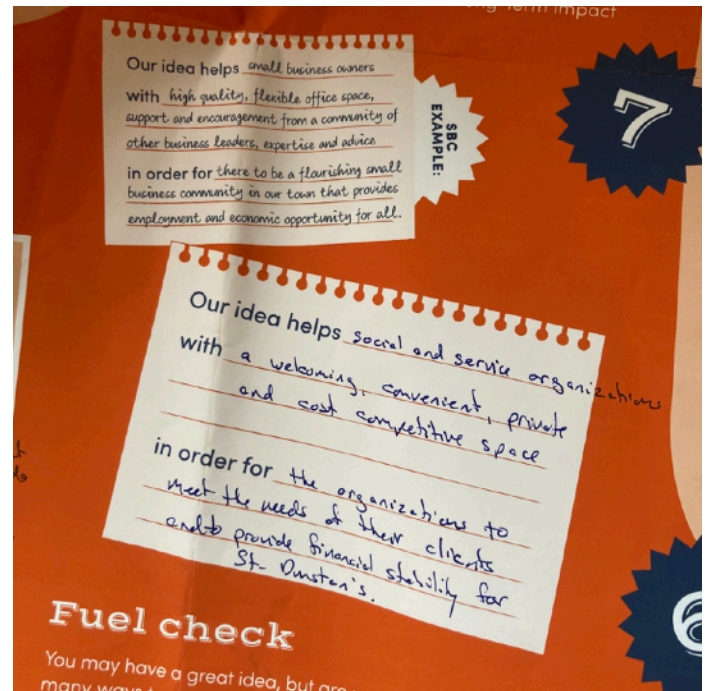 Long-Term impact
Our idea helps small business owners
with high quality, flexible office space,
support and encouragement from a community of
other business leaders, expertise and advice
in order for there to be a flourishing small
business community in our town that provides
employment and economic opportunity for all.
SBC
EXAMPLE:
7
Our idea helps social and service organizations
with a welcoming, convenient, private
and cost competitive space
in order for the organizations to
meet the needs of their clients
and to provide financial stability for
St. Dunstan's.
6
Fuel check
You may have a great idea, but are
many ways